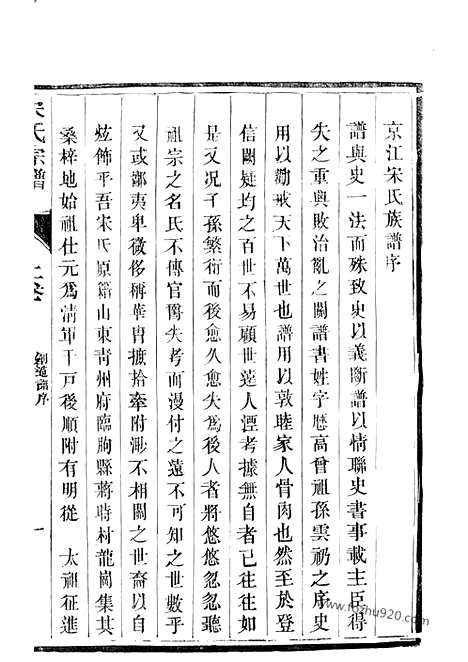 京江宋氏族譜序
譜與史一法而殊致史以義斷譜以情聯史書事載主臣得
失之重與敗治亂之關譜書姓字歷高曾祖孫雲礽之序史
用以勸戒天下萬世也譜用以敦睦家人骨肉也然至於登
信闕疑均之百世不易顧世遠人湮考據無自者已往往如
是又况子孫繁衍而後愈久愈失爲後人者將悠悠忽忽聽
祖宗之名氏不傳官閥失考而漫付之遠不可知之世數乎
又或鄙夷卑微侈稱華冑摭拾牽附渺不相關之世裔以自
炫飾乎吾宋氏原籍山東青州府臨朐縣蔣時村龍崗集其
桑梓地始祖仕元爲清軍千戸後順附有明從 太祖征進
宋氏宗譜
上卷
創造譜序
一
www.fozhu920.com